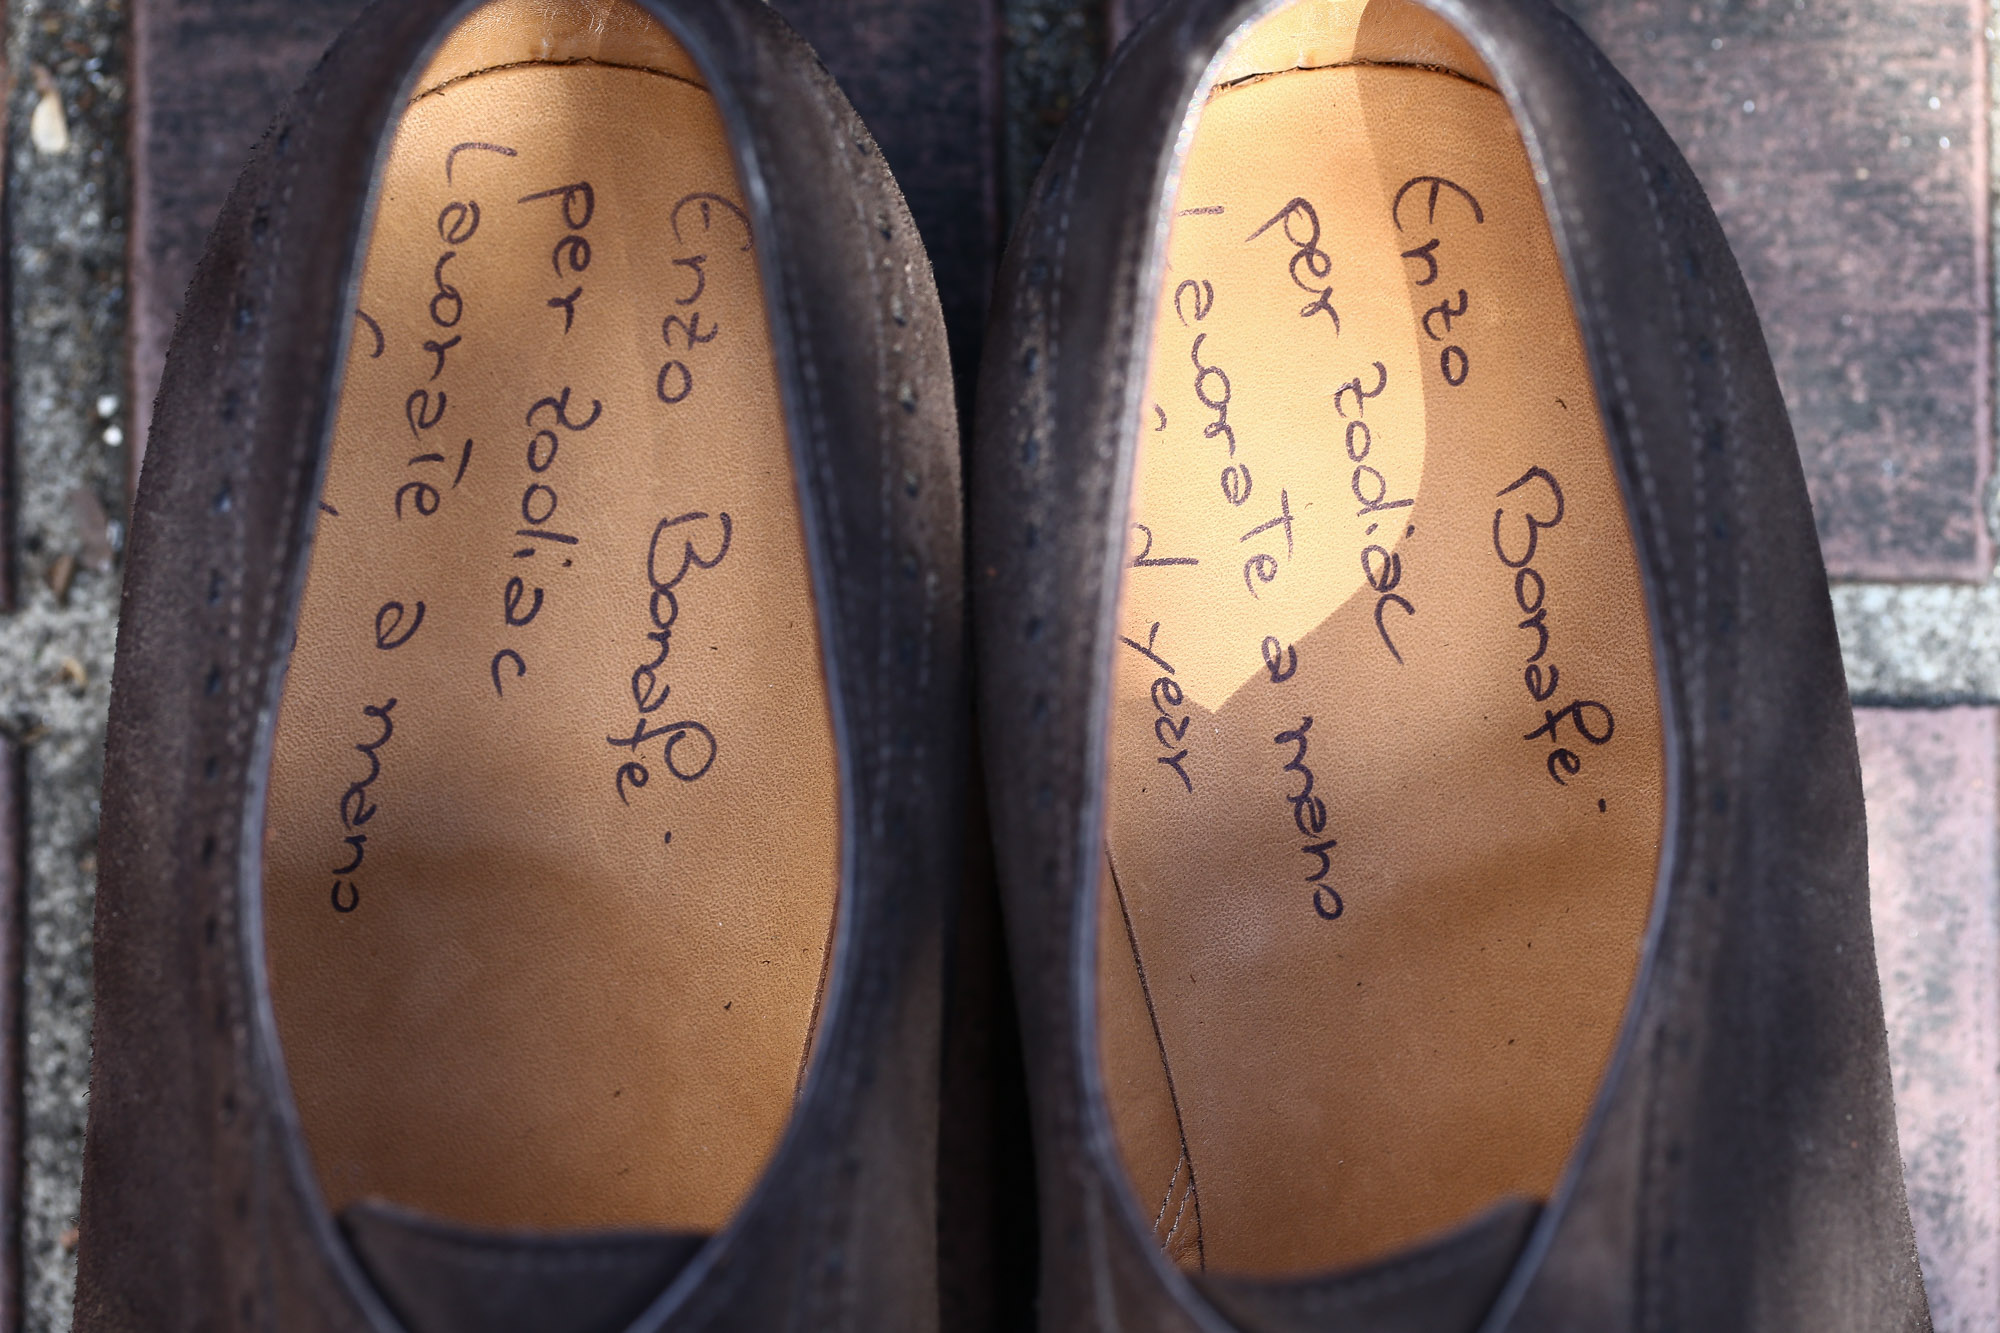 Enzo Bonafè
per zodiac
Lavorate a mano
Enzo Bonafè
per zodiac
Lavorate a mano
year